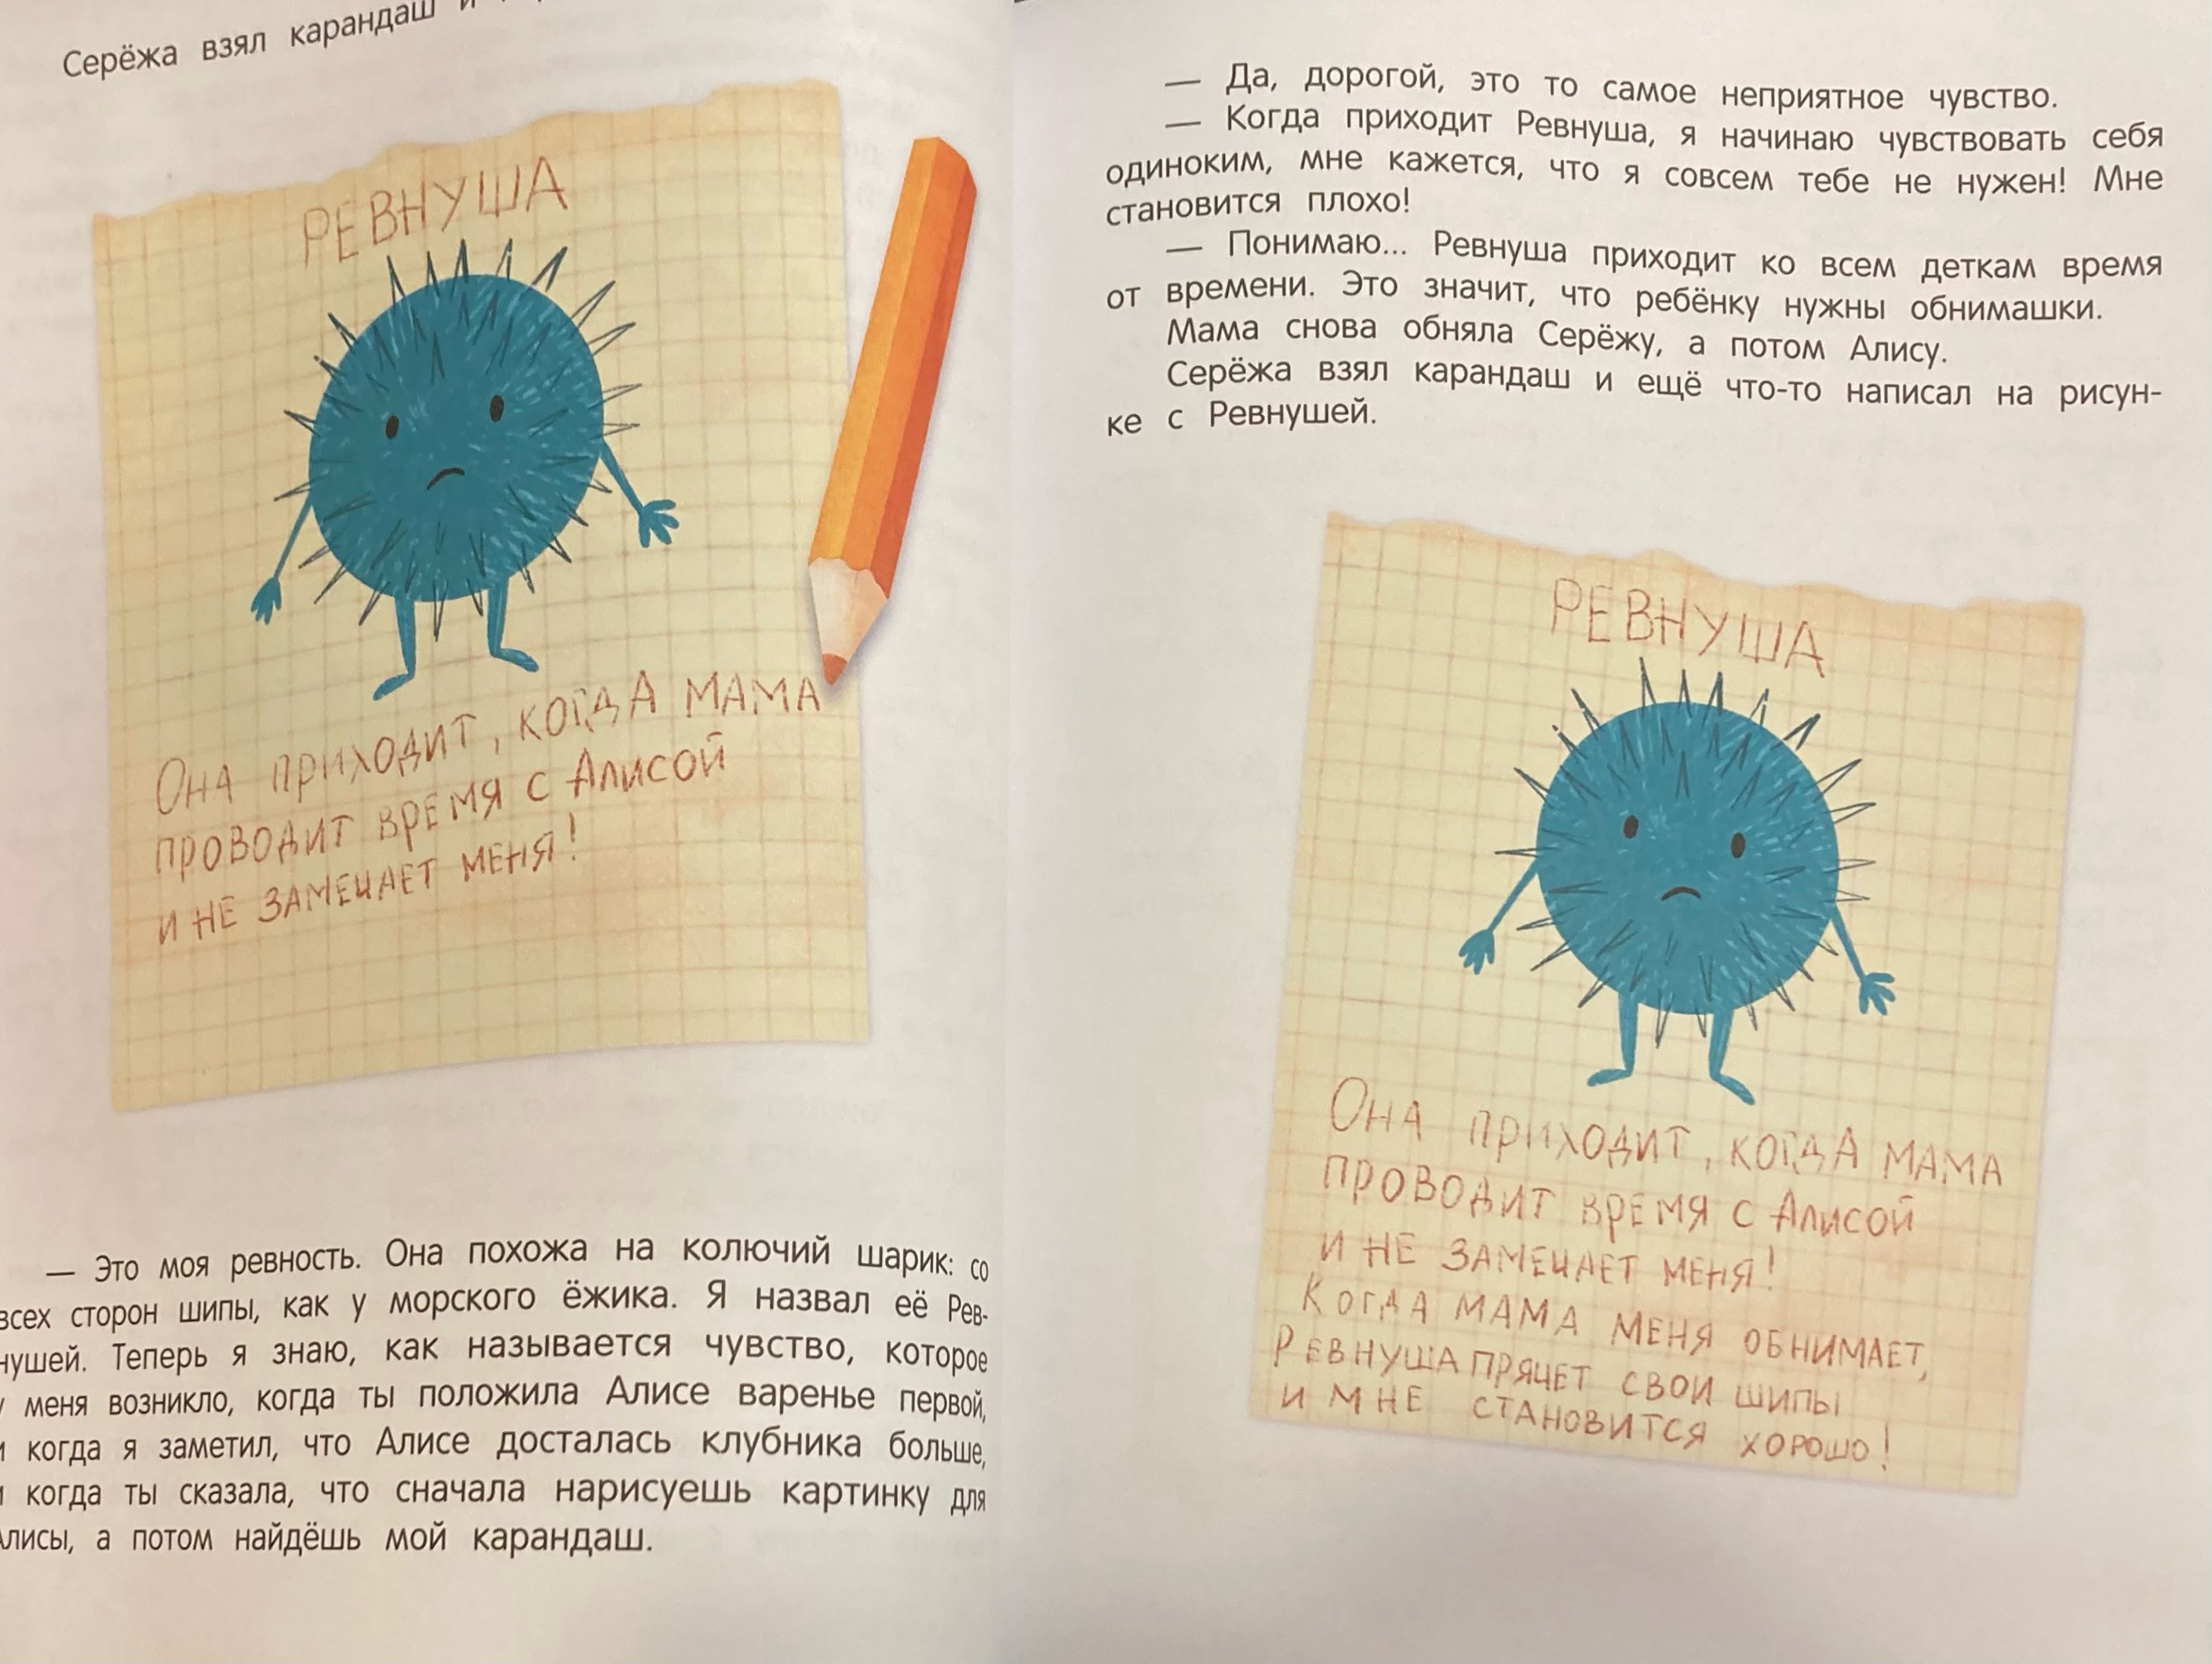 Серёжа взял карандаш и
РЕВНУША
Она приходит, когда мама
проводит время с Алисой
и не замечает меня!
— Это моя ревность. Она похожа на колючий шарик: со
всех сторон шипы, как у морского ёжика. Я назвал её Рев-
нушей. Теперь я знаю, как называется чувство, которое
у меня возникло, когда ты положила Алисе варенье первой,
и когда я заметил, что Алисе досталась клубника больше,
и когда ты сказала, что сначала нарисуешь картинку для
Алисы, а потом найдёшь мой карандаш.
— Да, дорогой, это то самое неприятное чувство.
— Когда приходит Ревнуша, я начинаю чувствовать себя
одиноким, мне кажется, что я совсем тебе не нужен! Мне
становится плохо!
— Понимаю... Ревнуша приходит ко всем деткам время
от времени. Это значит, что ребёнку нужны обнимашки.
Мама снова обняла Серёжу, а потом Алису.
Серёжа взял карандаш и ещё что-то написал на рисун-
ке с Ревнушей.
РЕВНУША
Она приходит, когда мама
проводит время с Алисой
и не замечает меня!
Когда мама меня обнимает,
Ревнуша прячет свои шипы
и мне становится хорошо!